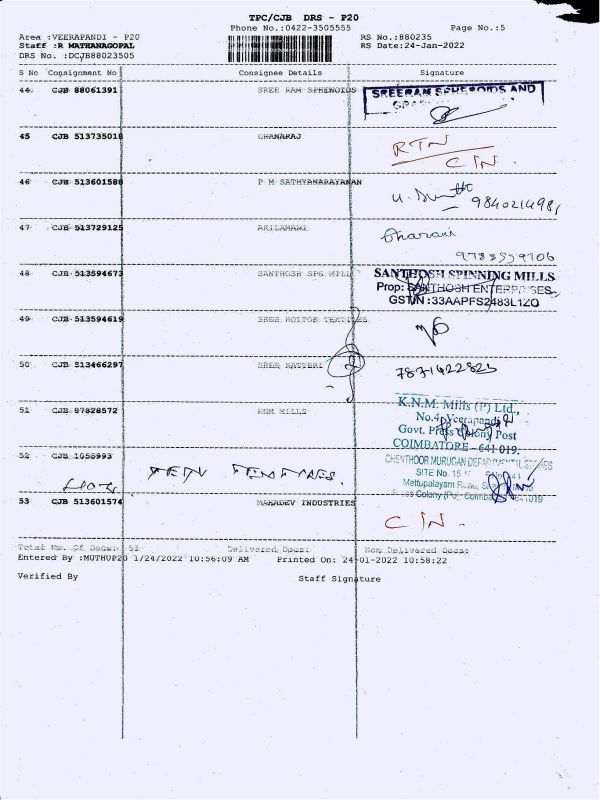 TPC/CJB DRS - P20
Phone No.:0422-3505555
Page No.:5
Area :VEERAPANDI - P20
RS No.:880235
Staff :R MATHANAGOPAL
RS Date:24-Jan-2022
DRS No. :DCJB88023505
S No Consignment No Consignee Details Signature
44 CJB 88061391 SREE RAM SPHEROIDS SREERAM SPHEROIDS AND
45 CJB 513735018 DHANARAJ RTN
CIN.
46 CJB 513601588 P M SATHYANARAYANAN
47 CJB 513729125 AKILAMANI Dharani
48 CJB 513594673 SANTHOSH SPG MILL SANTHOSH SPINNING MILLS
Prop: SANTHOSH ENTERPRISES
GSTIN :33AAPFS2483L1ZO
49 CJB 513594619 SREE KOTTOR TEXTILES
50 CJB 513466297 SREE KATTERI
51 CJB 87828572 KNM MILLS K.N.M. Mills (P) Ltd.,
No.4, Veerapandi
Govt. Press Colony Post
COIMBATORE - 641 019.
52 CJB 1055993 CHENTHOOR MURUGAN DEPARTMENTAL STORES
SITE No. 15
Mettupalayam Road,
Press Colony (Po), Coimbatore - 641019
53 CJB 513601574 MAHADEV INDUSTRIES CIN.
Total No. Of Docs: 53 Delivered Docs: Non Delivered Docs:
Entered By :MUTHUP20 1/24/2022 10:56:09 AM Printed On: 24-01-2022 10:58:22
Verified By Staff Signature